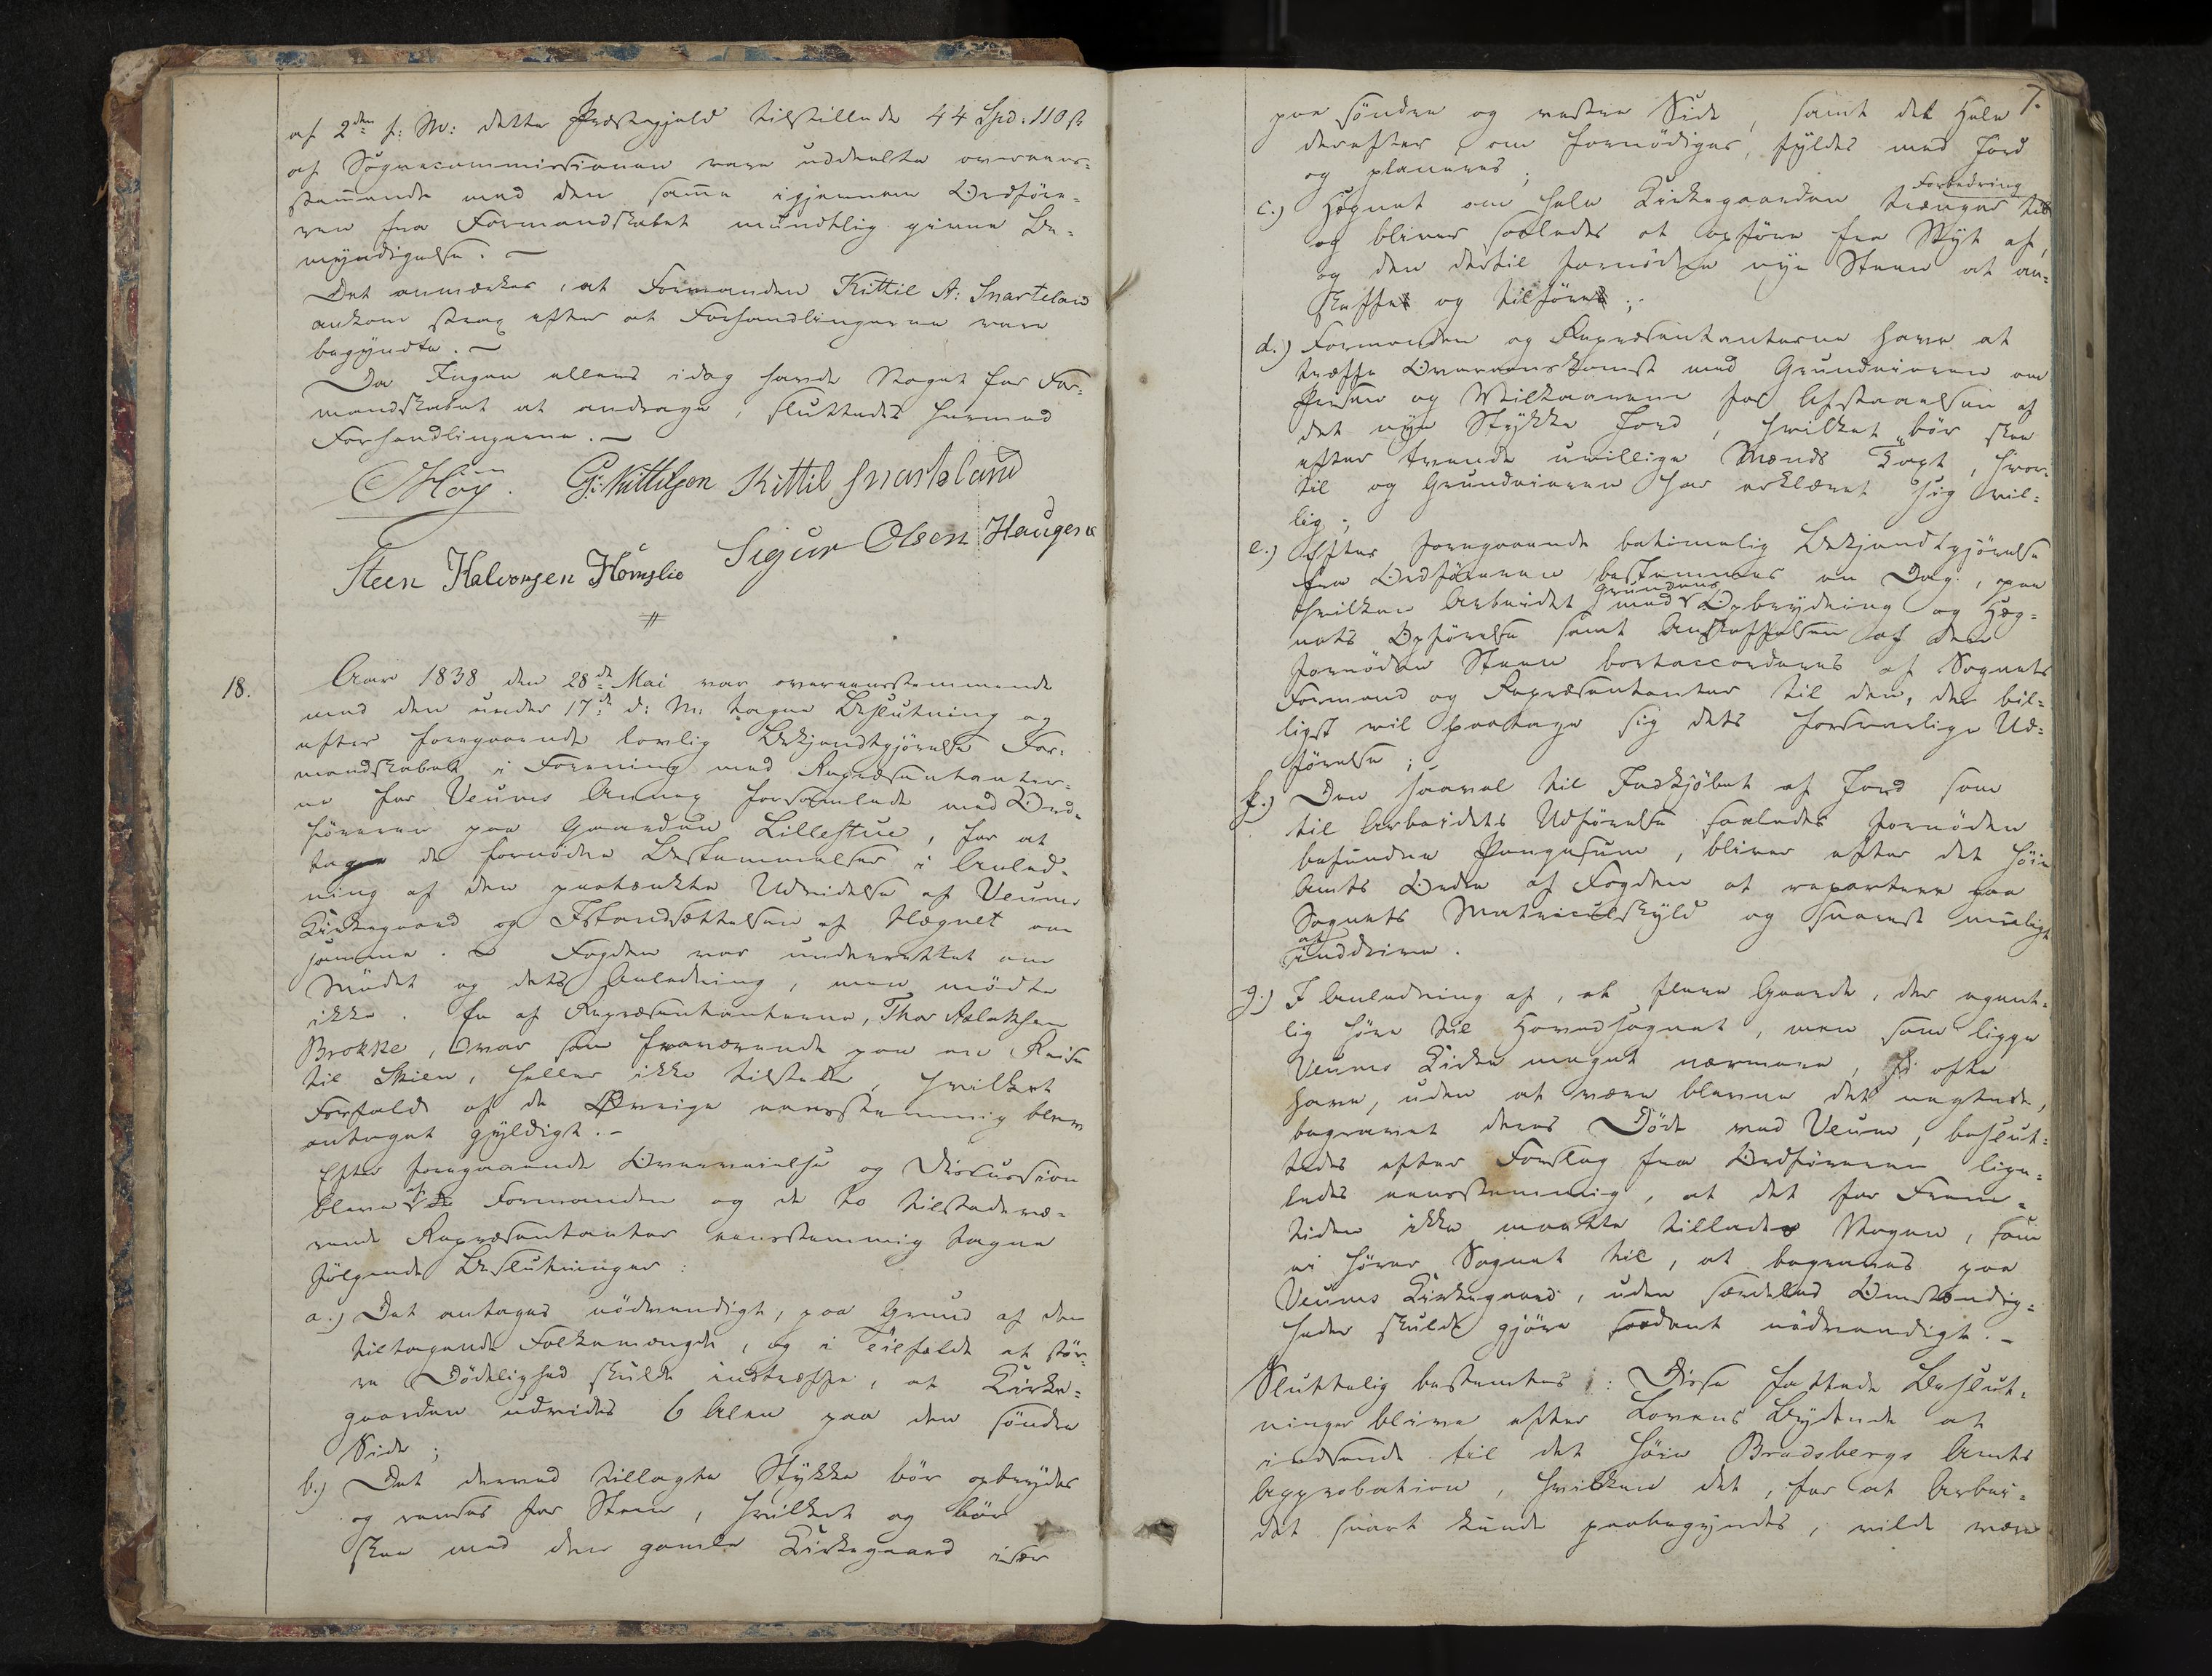 af 2den f: M: dette Præstegjeld tilstillede 44 Spd. 110 s
af Sognecommissionen være uddeelte overeens-
stemmende med den samme igjennem Ordföre-
ren fra Formandskabet mundtlig givne Be-
myndigelse. –
Det anmærkes, at Formanden Kittil A: Snarteland
ankom strax efter at Forhandlingerne vare
begyndte. –
Da Ingen ellers idag havde Noget for For-
mandskabet at andrage, sluttedes hermed
Forhandlingerne. –
MHöy. G: Kittilsen Kittil Snarteland
Steen Halvorsen Homslie Sigur Olsen Haugene
18.
Aar 1838 den 28de Mai var overeensstemmende
med den under 17de d: M: tagne Beslutning og
efter foregaaende lovlig Bekjendtgjörelse For-
mandskabet i Forening med Repræsentanter-
ne for Veums Annex forsamlede med Ord-
föreren paa Gaarden Lillestue, for at
tage de fornödne Bestemmelser i Anled-
ning af den paatænkte Udvidelse af Veums
Kirkegaard og Istandsættelsen af Hægnet om
samme. – Fogden var underrettet om
Mödet og dets Anledning, men mödte
ikke. En af Repræsentanterne, Thor Aslaksen
Brokke, var som fraværende paa en Reise
til Skien, heller ikke tilstede, hvilket
Forfald af de Övrige eensstemmig blev
antaget gyldigt. –
Efter foregaaende Overveielse og Discussion
bleve af de Formanden og de to tilstedevæ-
rende Repræsentanter eensstemmig tagne
fölgende Beslutninger:
a.) Det antages nödvendigt, paa Grund af den
tiltagende Folkemængde, og i Tilfælde at stör-
re Dödelighed skulde indtræffe, at Kirke-
gaarden udvides 6 Alen paa den söndre
Side;
b.) Det derved tillagte Stykke bör opbrydes
og renses for Steen, hvilket og bör
skee med den gamle Kirkegaard især
7.
paa söndre og vestre Side, samt det Hele
derefter, om fornödiges, fyldes med Jord
og planeres;
c.) Hegnet om hele Kirkegaarden trænger til Forbedring
og bliver saaledes at opföre fra Nyt af,
og den dertil fornödne nye Steen at an-
skaffe og tilföre;
d.) Formanden og Repræsentanterne have at
træffe Overeenskomst med Grundeieren om
Prisen og Vilkaarene for Afstaaelsen af
det nye Stykke Jord, hvilket bör skee
efter tvende uvillige Mænds Taxt, hvor-
til og Grundeieren har erklæret sig vil-
lig;
e.) Efter foregaaende betimelig Bekjendtgjörelse
fra Ordföreren bestemmes en Dag, paa
hvilken Arbeidet med Grundens Opbrydning og Heg-
nets Opförelse samt Anskaffelsen af den
fornödne Steen bortaccorderes af Sognets
Formand og Repræsentanter til den, der bil-
ligst vil paatage sig dets forsvarlige Ud-
förelse;
f.) Den saavel til Indkjöbet af Jord som
til Arbeidets Udförelse saaledes fornöden
befundne Pengesum, bliver efter det höie
Amts Ordre af Fogden at repartere paa
Sognets Matriculskyld og snarest mueligt
at inddrive.
g.) I Anledning af, at flere Gaarde, der egent-
lig höre til Hovedsognet, men som ligge
Veums Kirke meget nærmere, ofte
have, uden at være blevne det negtede,
begravet deres Döde ved Veum, beslut-
tedes efter Forslag fra Ordföreren lige-
ledes eensstemmig, at det for Frem-
tiden ikke maatte tillades Nogen, som
ei hörer Sognet til, at begraves paa
Veums Kirkegaard, uden særdeles Omstændig-
heder skulde gjöre saadant nödvendigt. –
Sluttelig bestemtes: Disse fattede Beslut-
ninger blive efter Lovens Bydende at
indsende til det höie Bradsbergs Amts
Approbation, hvilken det, for at Arbei-
det snart kunde paabegyndes, vilde være